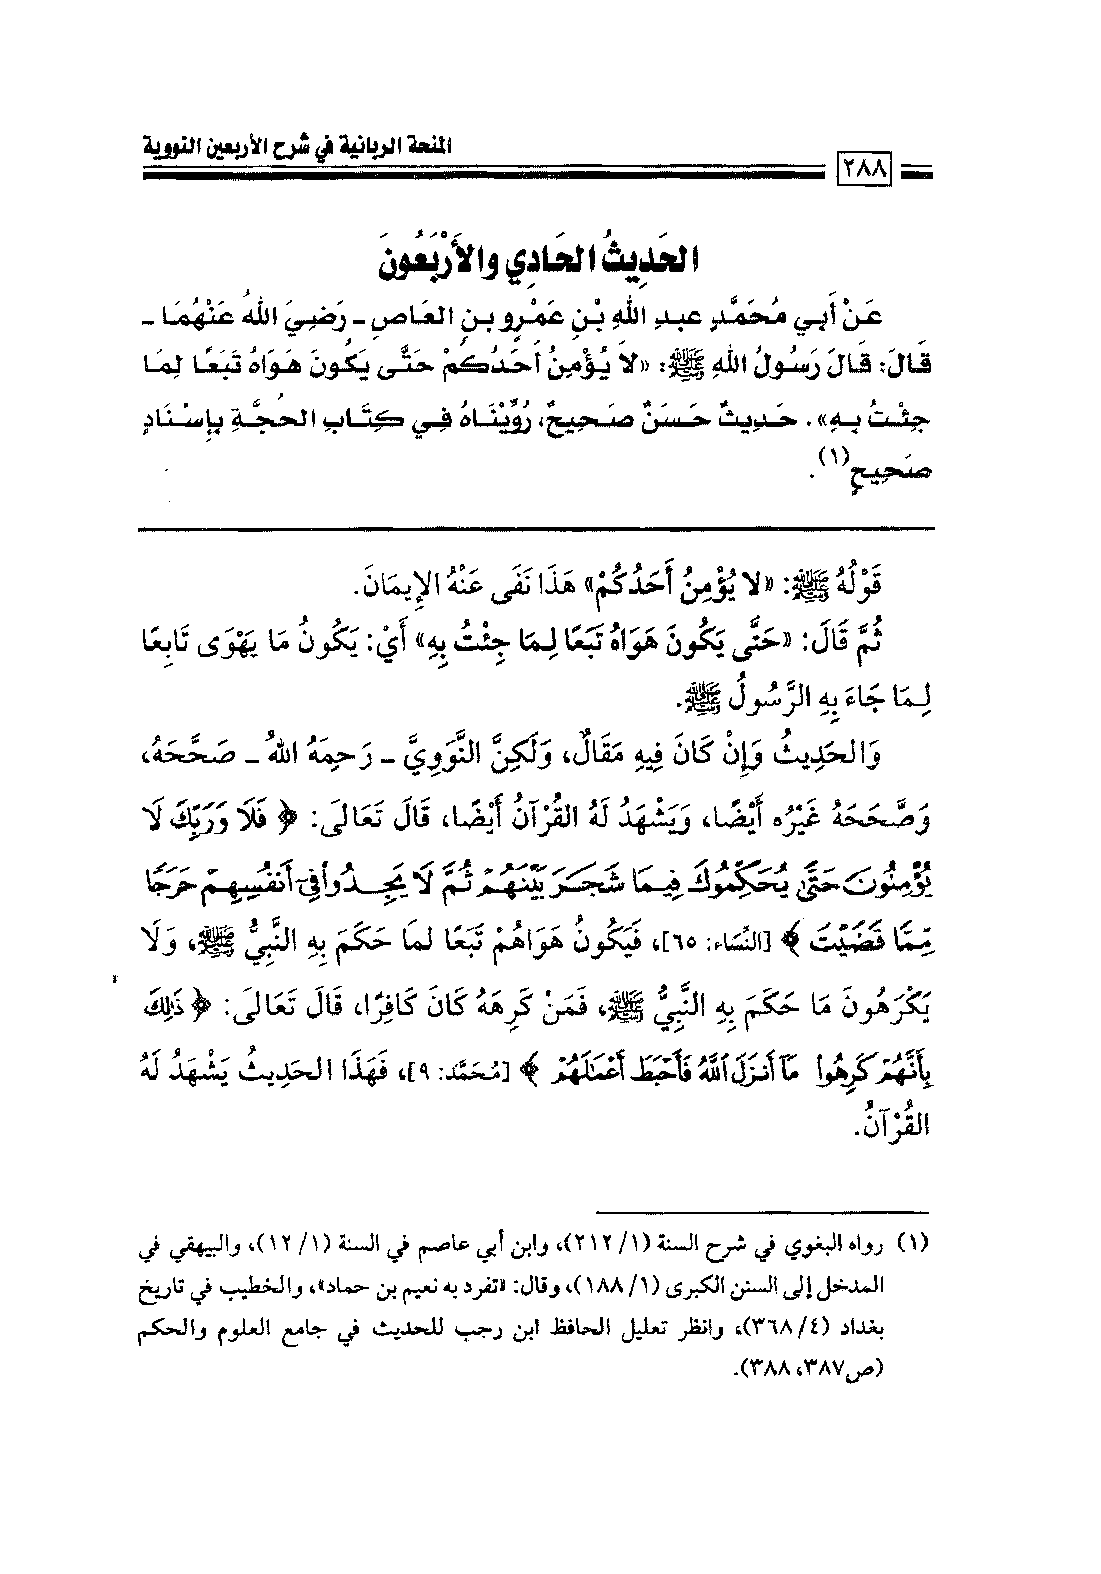 المنحة الربانية في شرح الأربعين النووية
٢٨٨
الحَدِيثُ الحَادِي والأَرْبَعُونَ
عَنْ أَبِي مُحَمَّدٍ عبدِ اللهِ بْنِ عَمْرِو بنِ العَاصِ ـ رَضِيَ اللهُ عَنْهُمَا ـ
قَالَ: قَالَ رَسُولُ اللهِ ﷺ: «لاَ يُؤْمِنُ أَحَدُكُمْ حَتَّى يَكُونَ هَوَاهُ تَبَعًا لِمَا
جِئْتُ بِهِ». حَدِيثٌ حَسَنٌ صَحِيحٌ، رُوِّينَاهُ فِي كِتَابِ الحُجَّةِ بِإِسْنَادٍ
صَحِيحٍ(١).
قَوْلُهُ ﷺ: «لا يُؤْمِنُ أَحَدُكُمْ» هَذَا نَفَى عَنْهُ الإِيمَانَ.
ثُمَّ قَالَ: «حَتَّى يَكُونَ هَوَاهُ تَبَعًا لِمَا جِئْتُ بِهِ» أَيْ: يَكُونُ مَا يَهْوَى تَابِعًا
لِمَا جَاءَ بِهِ الرَّسُولُ ﷺ.
وَالحَدِيثُ وَإِنْ كَانَ فِيهِ مَقَالٌ، وَلَكِنَّ النَّوَوِيَّ ـ رَحِمَهُ اللهُ ـ صَحَّحَهُ،
وَصَّحَحَهُ غَيْرُه أَيْضًا، وَيَشْهَدُ لَهُ القُرْآنُ أَيْضًا، قَالَ تَعَالَى: ﴿ فَلَا وَرَبِّكَ لَا
يُؤْمِنُونَ حَتَّى يُحَكِّمُوكَ فِيمَا شَجَرَ بَيْنَهُمْ ثُمَّ لَا يَجِدُوا فِي أَنفُسِهِمْ حَرَجًا
مِّمَّا قَضَيْتَ ﴾ [النِّسَاء: ٦٥]، فَيَكُونُ هَوَاهُمْ تَبَعًا لمَا حَكَمَ بِهِ النَّبِيُّ ﷺ، وَلَا
يَكْرَهُونَ مَا حَكَمَ بِهِ النَّبِيُّ ﷺ، فَمَنْ كَرِهَهُ كَانَ كَافِرًا، قَالَ تَعَالَى: ﴿ ذَٰلِكَ
بِأَنَّهُمْ كَرِهُوا مَا أَنزَلَ اللَّهُ فَأَحْبَطَ أَعْمَالَهُمْ ﴾ [مُحَمَّد: ٩]، فَهَذَا الحَدِيثُ يَشْهَدُ لَهُ
القُرْآنُ.
(١) رواه البغوي في شرح السنة (١/ ٢١٢)، وابن أبي عاصم في السنة (١/ ١٢)، والبيهقي في
المدخل إلى السنن الكبرى (١/ ١٨٨)، وقال: «تفرد به نعيم بن حماد»، والخطيب في تاريخ
بغداد (٤/ ٣٦٨)، وانظر تعليل الحافظ ابن رجب للحديث في جامع العلوم والحكم
(ص٣٨٧، ٣٨٨).